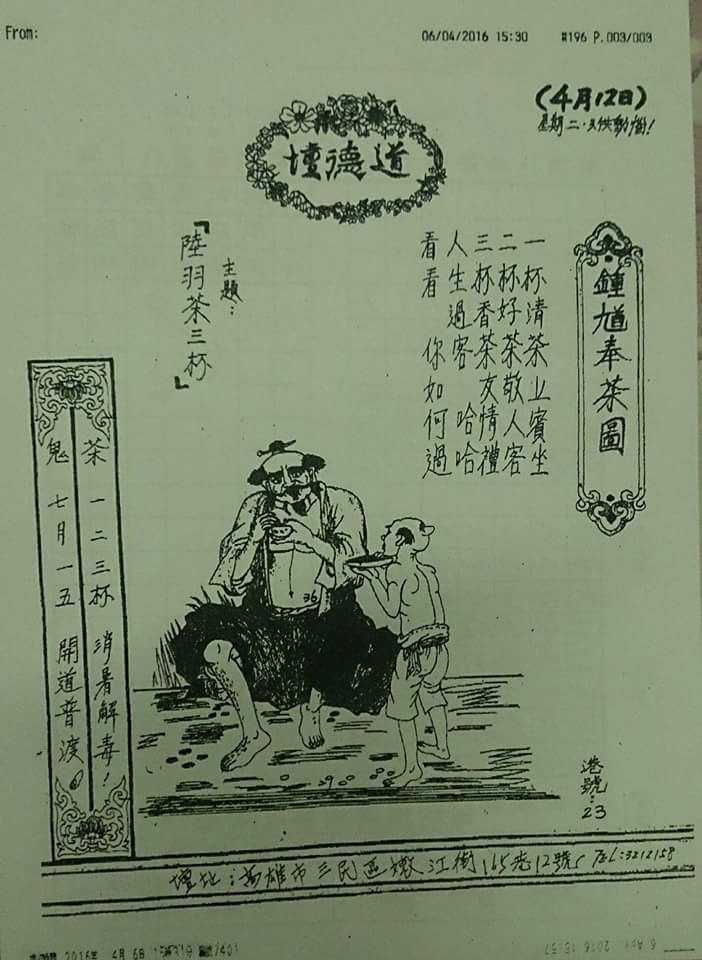 From:
06/04/2016 15:30
#196 P.003/003
(4月12日)
道德壇
鍾馗奉茶圖
一杯清茶上賓坐
二杯好茶敬人客
三杯香茶友情禮
人生過客 哈哈
看看 你如何過
主題：
『陸羽茶三杯』
茶 一二三杯 消暑解毒！
鬼 七月一五 開道普渡。
36
29
港號：23
壇址：高雄市三民區 江街165巷12號 TEL:3212158
2016年 4月 6日